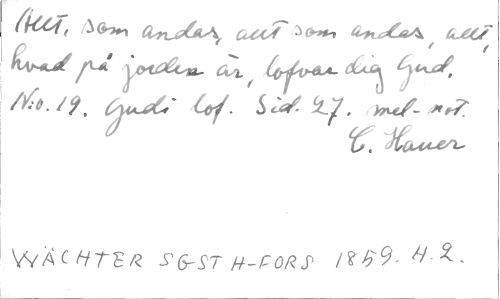 Allt, som andas, allt som andas, allt,
hvad på jorden är, lofvar dig Gud.
N:o. 19. Guds lof. Sid. 27. mel-not.
C. Hauer
WÄCHTER SGST H-FORS 1859. H.2.